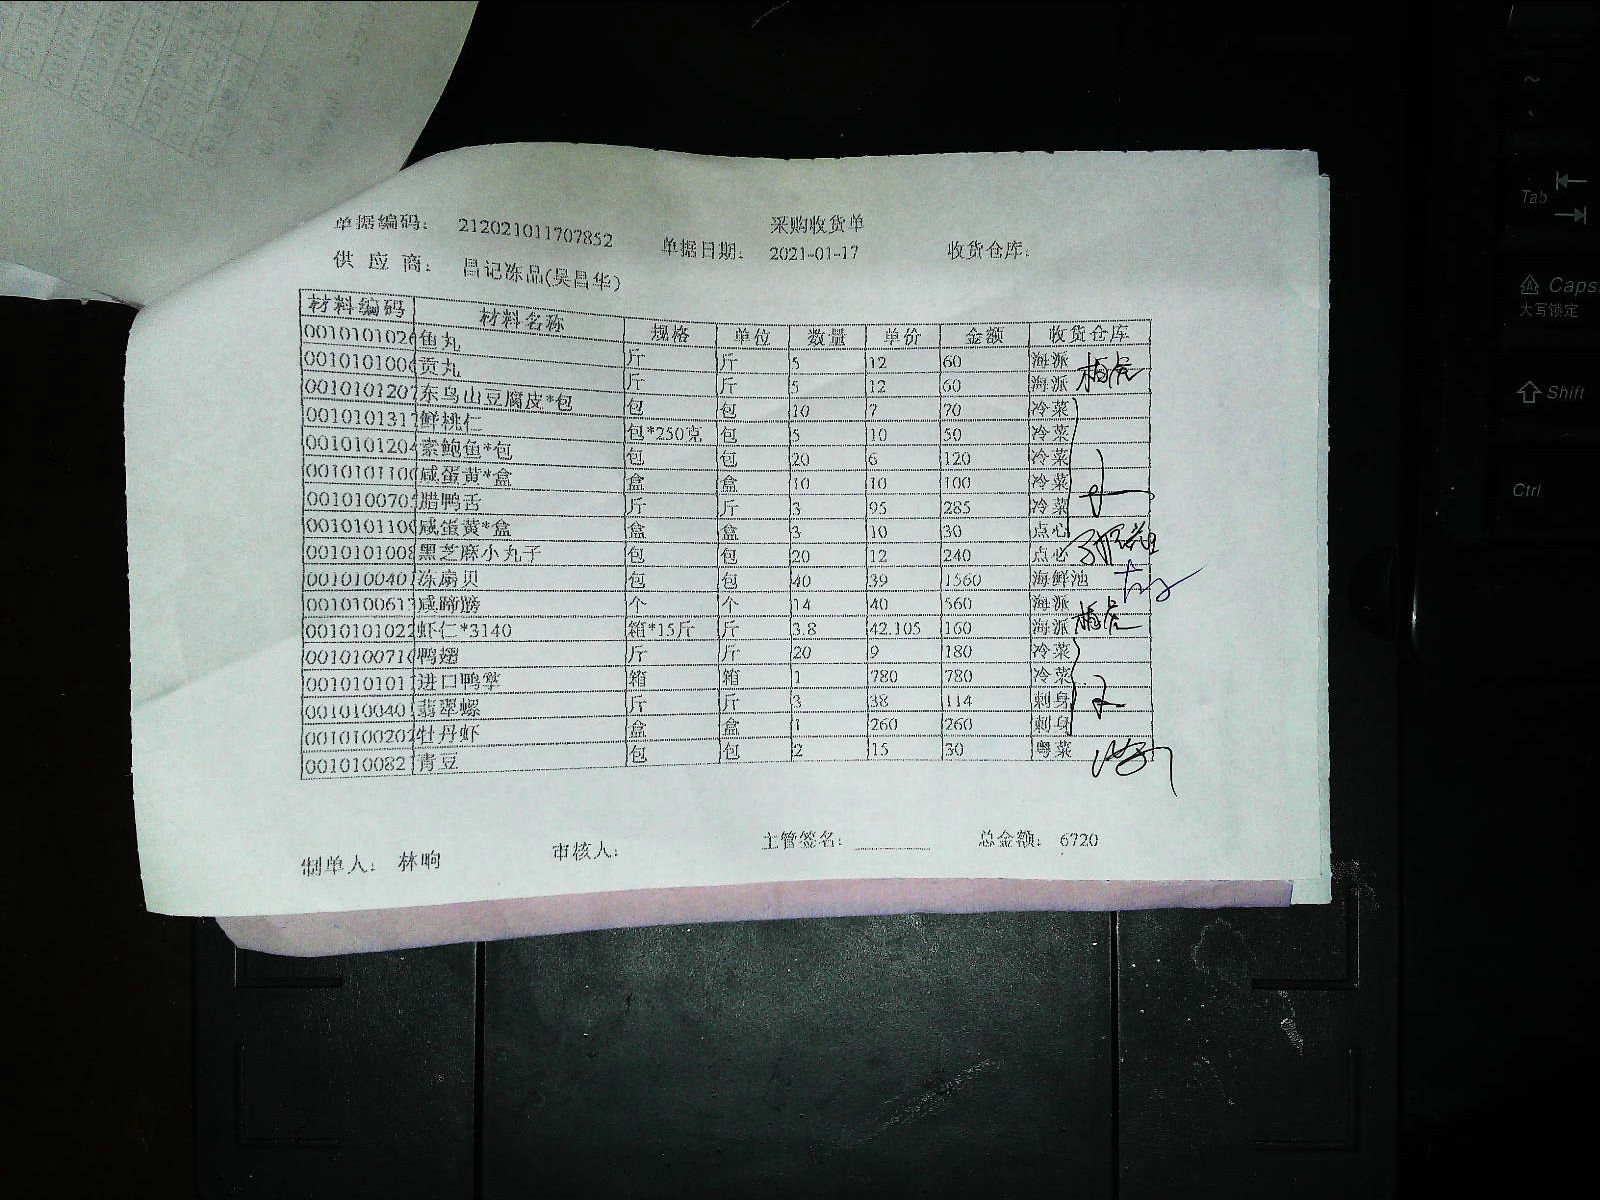 采购收货单
单据编码： 212021011707852 单据日期： 2021-01-17 收货仓库：
供应商： 昌记冻品(吴昌华)
材料编码 材料名称 规格 单位 数量 单价 金额 收货仓库
001010102 鱼丸 斤 斤 5 12 60 海派
001010100 贡丸 斤 斤 5 12 60 海派
0010101207 东乌山豆腐皮*包 包 包 10 7 70 冷菜
001010131 鲜桃仁 包*250克 包 5 10 50 冷菜
001010120 素鲍鱼*包 包 包 20 6 120 冷菜
001010110 咸蛋黄*盒 盒 盒 10 10 100 冷菜
001010070 腊鸭舌 斤 斤 3 95 285 冷菜
001010110 咸蛋黄*盒 盒 盒 3 10 30 点心
001010100 黑芝麻小丸子 包 包 20 12 240 点心
001010040 冻扇贝 包 包 40 39 1560 海鲜池
001010061 咸蹄膀 个 个 14 40 560 海派
001010102 虾仁*3140 箱*15斤 斤 3.8 42.105 160 海派
001010071 鸭翅 斤 斤 20 9 180 冷菜
001010101 进口鸭掌 箱 箱 1 780 780 冷菜
001010040 翡翠螺 斤 斤 3 38 114 刺身
001010020 牡丹虾 盒 盒 1 260 260 刺身
001010082 青豆 包 包 2 15 30 粤菜
制单人： 林晌 审核人： 主管签名： 总金额： 6720
~
Tab
Caps
大写锁定
Shift
Ctrl